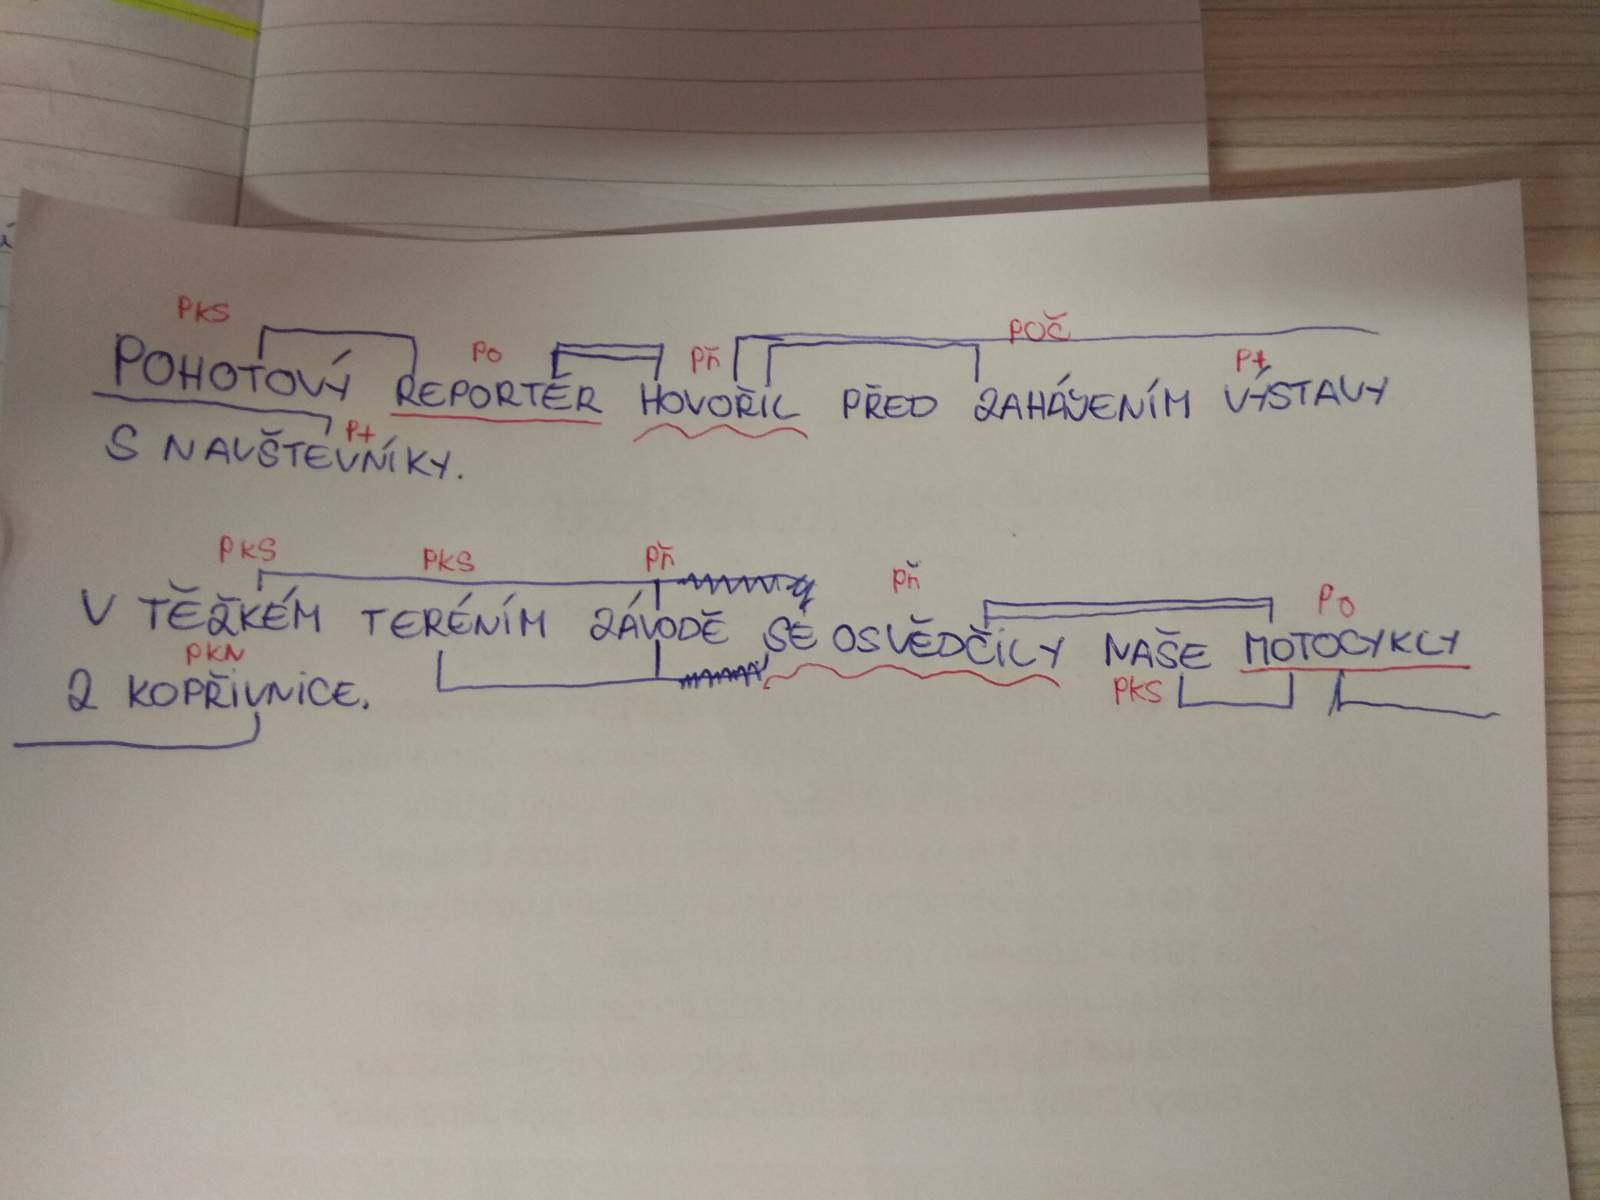 PKS PO PŘ POČ Pt
POHOTOVÝ REPORTÉR HOVOŘIL PŘED ZAHÁJENÍM VÝSTAVY
Pt
S NAVŠTEVNÍKY.
PKS PKS PŘ PŘ PO
V TĚŽKÉM TERÉNÍM ZÁVODĚ SE OSVĚDČILY NAŠE MOTOCYKLY
PKN PKS
Z KOPŘIVNICE.